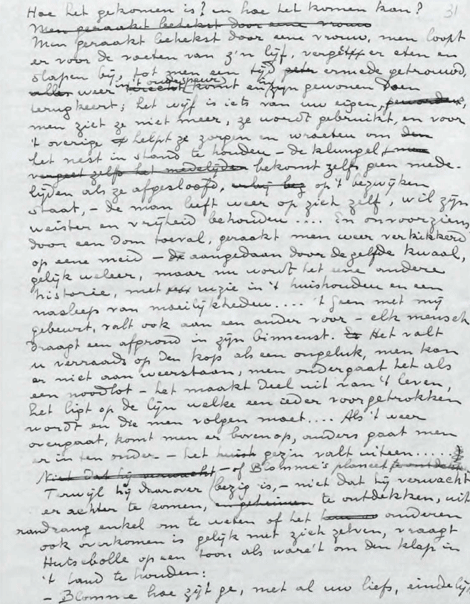 Hoe het gekomen is? en hoe het komen kan? 31
Men geraakt behekst door eene vrouw
Men geraakt behekst door eene vrouw, men loopt
er voor de voeten van z'n lijf, vergeet er eten en
slapen bij, tot men een tijd ermede getrouwd,
alles weer in 't komt en zijn gewonen doen
terugkeert; het wijf is iets van uw eigen,
men ziet ze niet meer, ze wordt gebruikt, en voor
't overige helpt ze zorgen en wroeten om den
het nest in stand te houden - de klungel,
vergeet zelfs het medelijden bekomt zelfs geen mede-
lijden als ze afgesloofd, op 't bezwijken
staat, - de man leeft weer op zich zelf, wil zijn
meister en vrijheid behouden .... En onvoorziens
door een dom toeval, geraakt men weer verkikkerd
op eene meid - aangedaan door de zelfde kwaal,
gelijk weleer, maar nu wordt het eene andere
historie, met ruzie in 't huishouden en een
nasleep van moeilijkheden .... 't Geen met mij
gebeurt, valt ook aan een ander voor - elk mensch
draagt een afgrond in zijn binnenst. Het valt
u verraads op den kop als een ongeluk, men kan
er niet aan weerstaan, men ondergaat het als
een noodlot - het maakt deel uit van 't leven,
het ligt op de lijn welke een ieder voorgetrokken
wordt en die men volgen moet .... Als 't weer
overgaat, komt men er bovenop, anders gaat men
er in ten onder - het gezin valt uiteen .....
Niet dat hij verwacht - of Blomme's planeet te ontdekken
Terwijl hij daarover bezig is, - niet dat hij verwacht
er achter te komen, te ontdekken, uit
randrang enkel om te weten of het anderen
ook overkomen is gelijk met zich zelven, vraagt
Hutsebolle op een toon, als ware 't om den klap in
't land te houden:
- Blomme hoe zijt ge, met al uw liefs, eindelijk